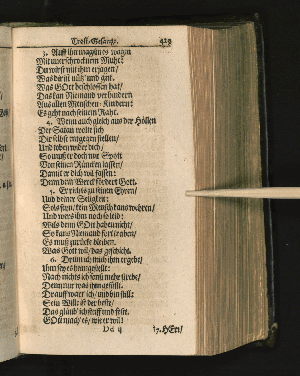 Trost-Gesänge. 429
3. Auff ihn magstu es wagen
Mit unerschrocknem Muht/
Du wirst mit ihm erjagen/
Was dir ist nütz und gut.
Was GOtt beschlossen hat/
Das kan Niemand verhindern
Aus allen Menschen-Kindern:
Es geht nach seinem Raht.
4. Wenn auch gleich aus der Höllen
Der Satan wolte sich
Dir selbst entgegen stellen/
Und toben wider dich/
So muß er doch mit Spott
Von seinen Räncken lassen/
Damit er dich wil fassen:
Denn dein Werck fördert Gott.
5. Er richts zu seinen Ehren/
Und deiner Seligkeit:
Sols seyn/ kein Mensch kans wehren/
Und wers ihm noch so leid:
Wils denn GOtt haben nicht/
So kans Niemand forttreiben/
Es muß zurücke bleiben.
Was Gott wil/ das geschicht.
6. Drum ich mich ihm ergebe/
Ihm sey es heimgestellt:
Nach nichts ich sonst mehr strebe/
Denn nur was ihm gefällt.
Drauff wart ich/ und bin still:
Sein Will ist der beste/
Das gläub ich steiff und feste.
GOtt mach es/ wie er wil!
7. HErr/